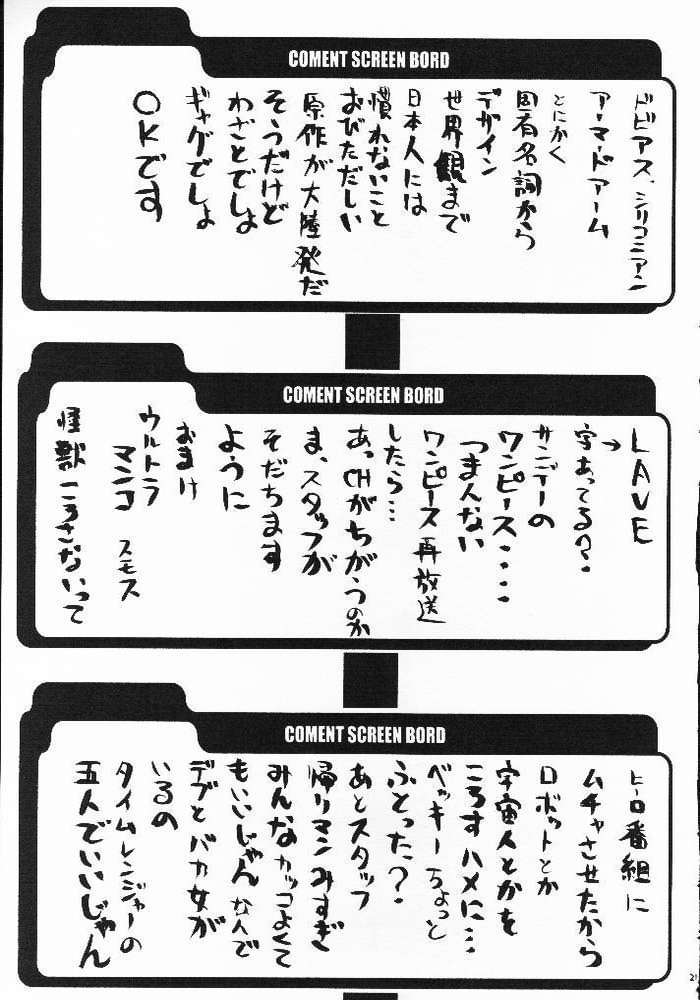 COMENT SCREEN BORD
ドビアス、シリコニアン
アーマードアーム
とにかく
固有名詞から
デザイン
世界観まで
日本人には
慣れないこと
おびただしい
原作が大陸発だ
そうだけど
わざとでしょ
ギャグでしょ
OKです
COMENT SCREEN BORD
LAVE
→字あってる?
サンデーの
ワンピース・・・・
つまんない
ワンピース再放送
したら…
あっCHがちがうのか
ま、スタッフが
そだちます
ように
おまけ
ウルトラ
マンコスモス
怪獣ころさないって
COMENT SCREEN BORD
ヒーロ番組に
ムチャさせたから
ロボットとか
宇宙人とかを
ころすハメに…
ベッキーちょっと
ふとった?
あとスタッフ
帰りマンみすぎ
みんなカッコよくて
もいいじゃん
デブとバカ女が
いるの
タイムレンジャーの
五人でいいじゃん